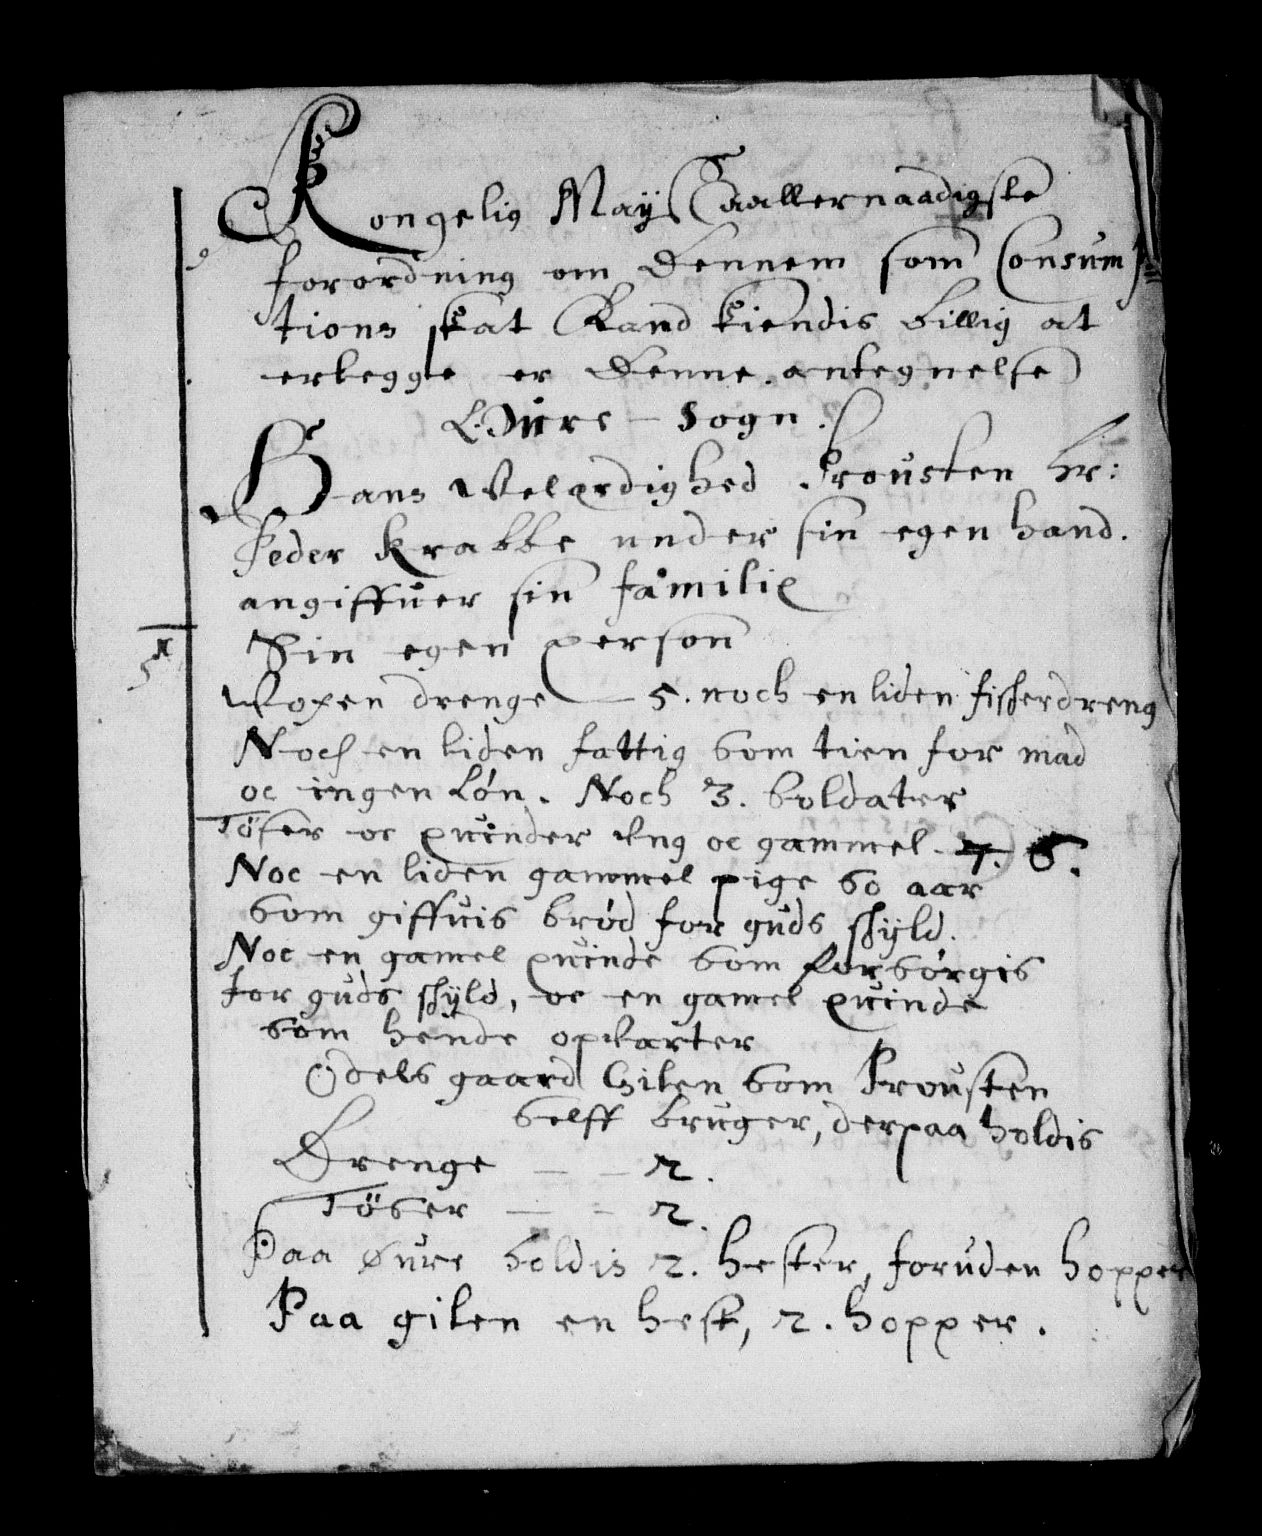 Kongelig Mayss aallernaadigste
forordning om dennem som Consum=
tions skat kand kiendis billig at
erlegge er denne antegnelse
Øure - Sogn.
Hans Welærdighed Prousten hr:
Peder Krabbe under sin egen hand.
angiffuer sin familie
Sin egen person
Woxen drenge — 5. noch en liden fisherdreng
Noch en liden fattig som tien for mad
oc ingen løn. Noch 3. soldater
Tøser oc quinder Vng oc gammel 7. 6.
Noc en liden gammel pige 60 aar
som giffuis brød for guds skyld.
Noc en gamel quinde som forsørgis
for guds skyld, oc en gamel quinde
som hende opvarter
Odels gaard Gilen som Prousten
selff bruger, derpaa holdis
Drenge — — 2.
Tøser — - 2.
Paa Øure holdis 2. hester, foruden hopper
Paa gilen en hest, 2. hopper.